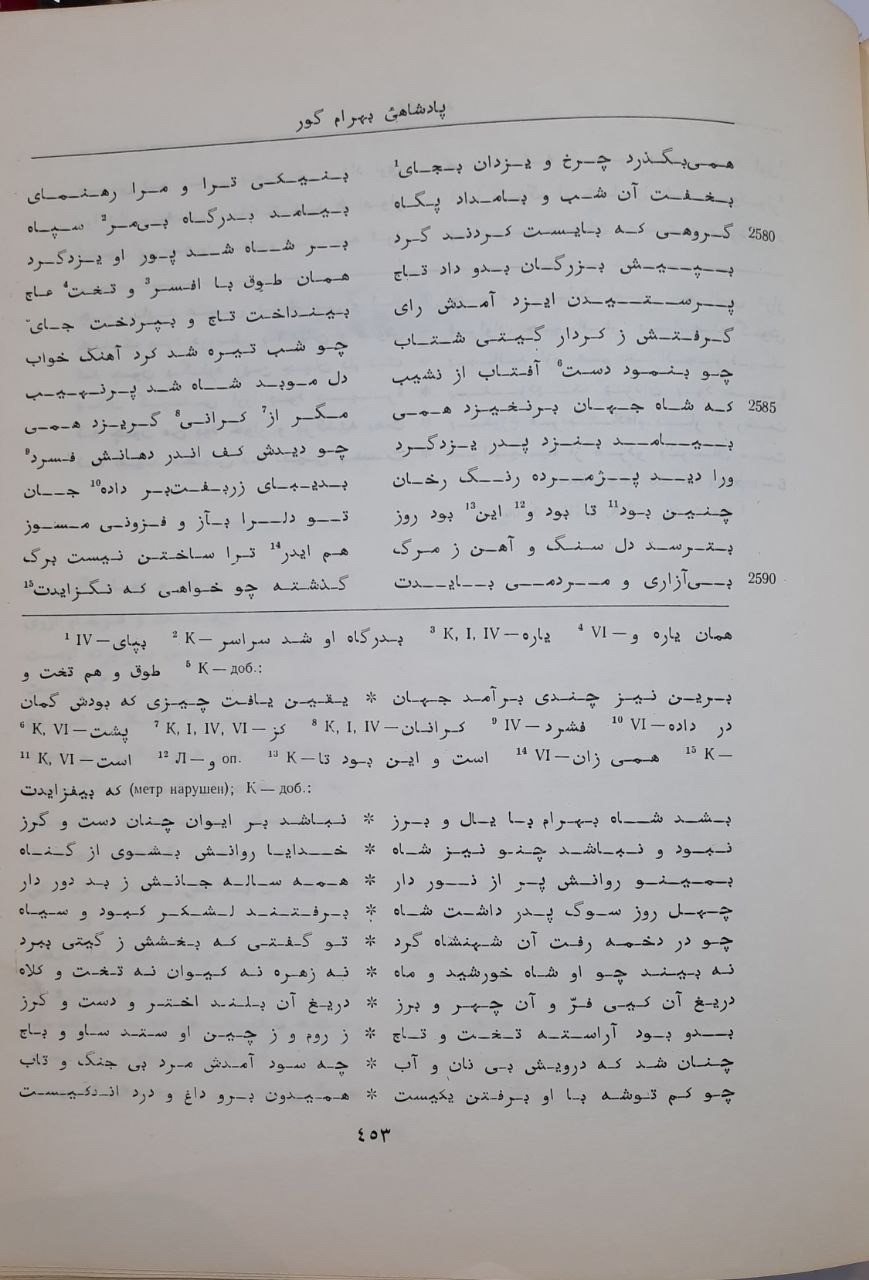 پادشاهیٔ بهرام گور
همی‌بگذرد چرخ و یزدان بجای¹ بنیکی ترا و مرا رهنمای
بخفت آن شب و بامداد پگاه بیامد بدرگاه بی‌مر² سپاه
2580 گروهی که بایست کردند گرد بر شاه شد پور او یزدگرد
بپیش بزرگان بدو داد تاج همان طوق با افسر³ و تخت⁴ عاج
پرستیدن ایزد آمدش رای بینداخت تاج و بپردخت جای⁵
گرفتش ز کردار گیتی شتاب چو شب تیره شد کرد آهنگ خواب
چو بنمود دست⁶ آفتاب از نشیب دل موبد شاه شد پرنهیب
2585 که شاه جهان برنخیزد همی مگر از⁷ کرانی⁸ گریزد همی
بیامد بنزد پدر یزدگرد چو دیدش کف اندر دهانش فسرد⁹
ورا دید پژمرده رنگ رخان بدیبای زربفت‌بر داده¹⁰ جان
چنین بود¹¹ تا بود و¹² این¹³ بود روز تو دلرا بآز و فزونی مسوز
بترسد دل سنگ و آهن ز مرگ هم ایدر¹⁴ ترا ساختن نیست برگ
2590 بی‌آزاری و مردمی بایدت گذشته چو خواهی که نگزایدت¹⁵
¹ IV — بپای ² K — بدرگاه او شد سراسر ³ K, I, IV — یاره ⁴ VI — همان یاره و
طوق و هم تخت و ⁵ K — доб.:
برین نیز چندی برآمد جهان * یقین یافت چیزی که بودش گمان
⁶ K, VI — پشت ⁷ K, I, IV, VI — کز ⁸ K, I, IV — کرانان ⁹ IV — فشرد ¹⁰ VI — در داده
¹¹ K, VI — است ¹² Л — و оп. ¹³ K — است و این بود تا ¹⁴ VI — همی زان ¹⁵ K —
که بیفزایدت (метр нарушен); K — доб.:
بشد شاه بهرام با یال و برز * نباشد بر ایوان چنان دست و گرز
نبود و نباشد چنو نیز شاه * خدایا روانش بشوی از گناه
بمینو روانش پر از نور دار * همه ساله جانش ز بد دور دار
چهل روز سوگ پدر داشت شاه * برفتند لشکر کبود و سیاه
چو در دخمه رفت آن شهنشاه گرد * تو گفتی که بخشش ز گیتی ببرد
نه بیند چو او شاه خورشید و ماه * نه زهره نه کیوان نه تخت و کلاه
دریغ آن کیی فرّ و آن چهر و برز * دریغ آن بلند اختر و دست و گرز
بدو بود آراسته تخت و تاج * ز روم و ز چین او ستد ساو و باج
چنان شد که درویش بی نان و آب * چه سود آمدش مرد بی جنگ و تاب
چو کم توشه با او برفتن یکیست * همیدون برو داغ و درد اندکیست
٤٥٣